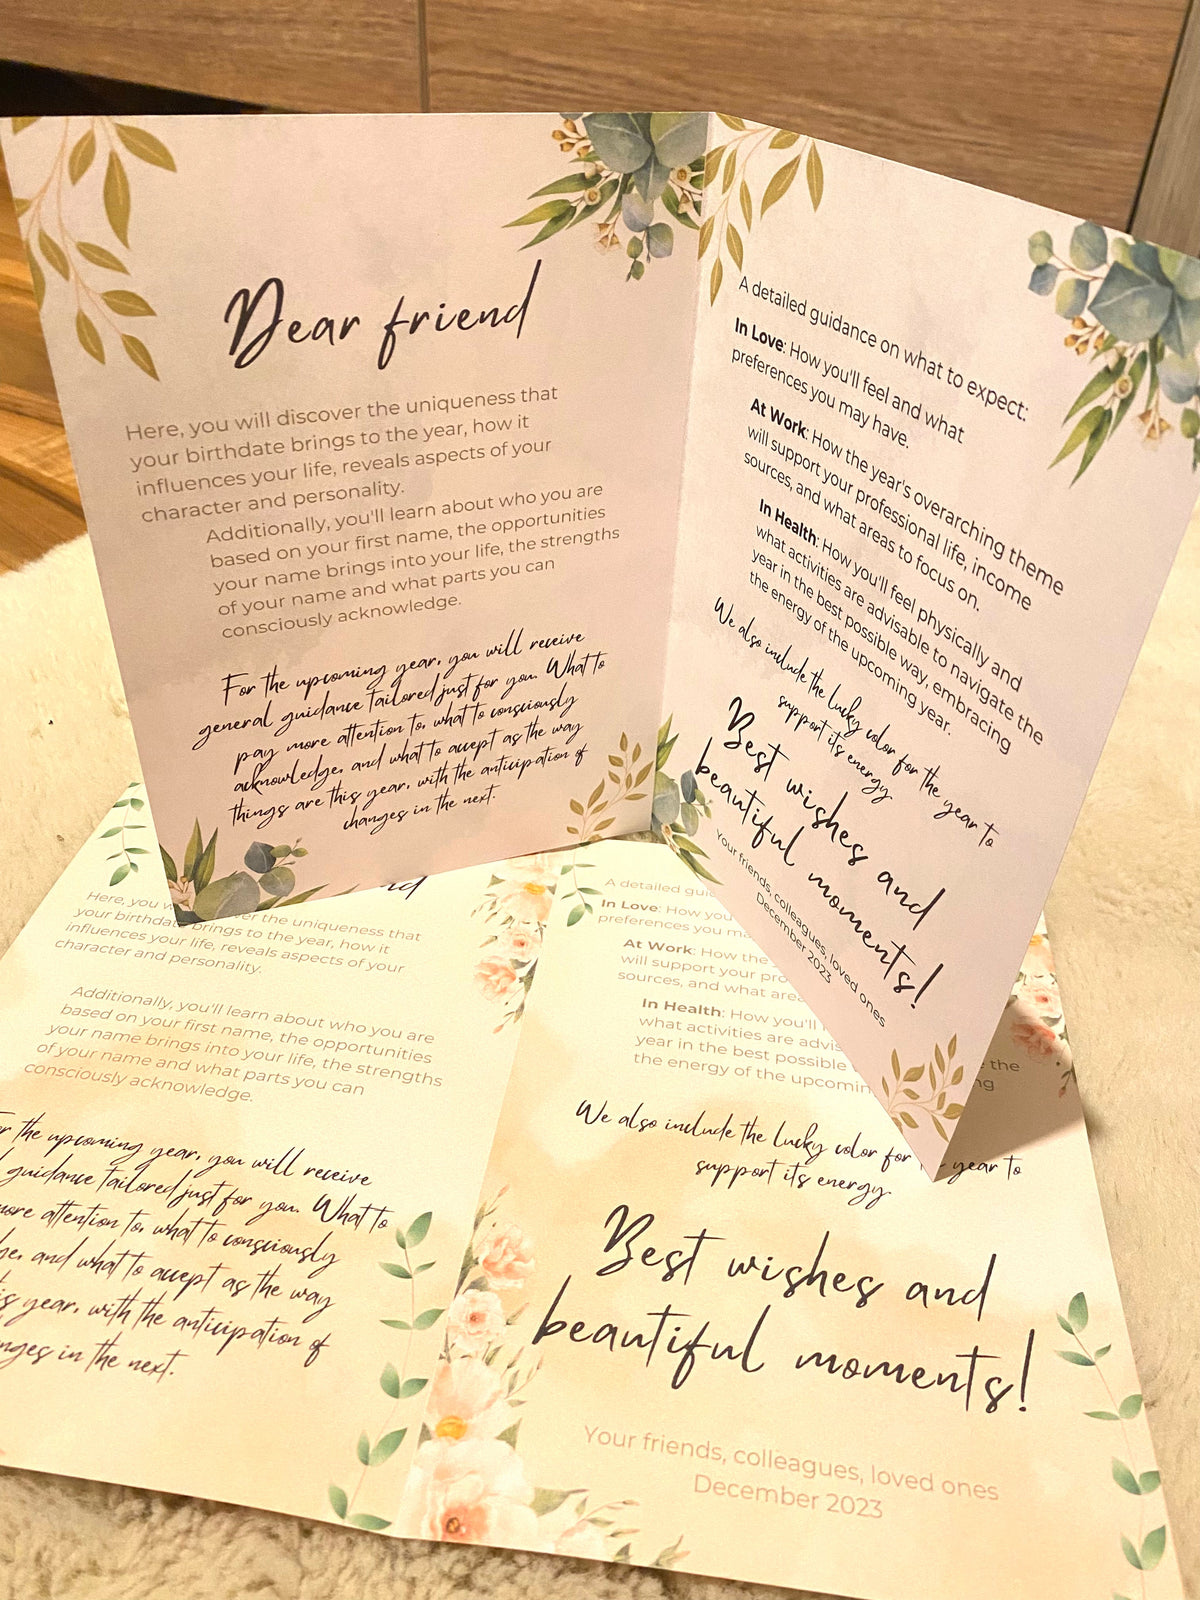 Dear friend
Here, you will discover the uniqueness that
your birthdate brings to the year, how it
influences your life, reveals aspects of your
character and personality.
Additionally, you'll learn about who you are
based on your first name, the opportunities
your name brings into your life, the strengths
of your name and what parts you can
consciously acknowledge.
For the upcoming year, you will receive
general guidance tailored just for you. What to
pay more attention to, what to consciously
acknowledge, and what to accept as the way
things are this year, with the anticipation of
changes in the next.
A detailed guidance on what to expect:
In Love: How you'll feel and what
preferences you may have.
At Work: How the year's overarching theme
will support your professional life, income
sources, and what areas to focus on.
In Health: How you'll feel physically and
what activities are advisable to navigate the
year in the best possible way, embracing
the energy of the upcoming year.
We also include the lucky color for the year to
support its energy
Best wishes and
beautiful moments!
Your friends, colleagues, loved ones
December 2023
Here, you the uniqueness that
your birthdate brings to the year, how it
influences your life, reveals aspects of your
character and personality.
Additionally, you'll learn about who you are
based on your first name, the opportunities
your name brings into your life, the strengths
of your name and what parts you can
consciously acknowledge.
the upcoming year, you will receive
guidance tailored just for you. What to
attention to, what to consciously
and what to accept as the way
year, with the anticipation of
in the next.
A detailed
In Love: How you
preferences you
At Work: How the
will support your
sources, and what
In Health: How you'll
what activities are the
year in the best possible
the energy of the
We also include the lucky color for year to
support its energy
Best wishes and
beautiful moments!
Your friends, colleagues, loved ones
December 2023